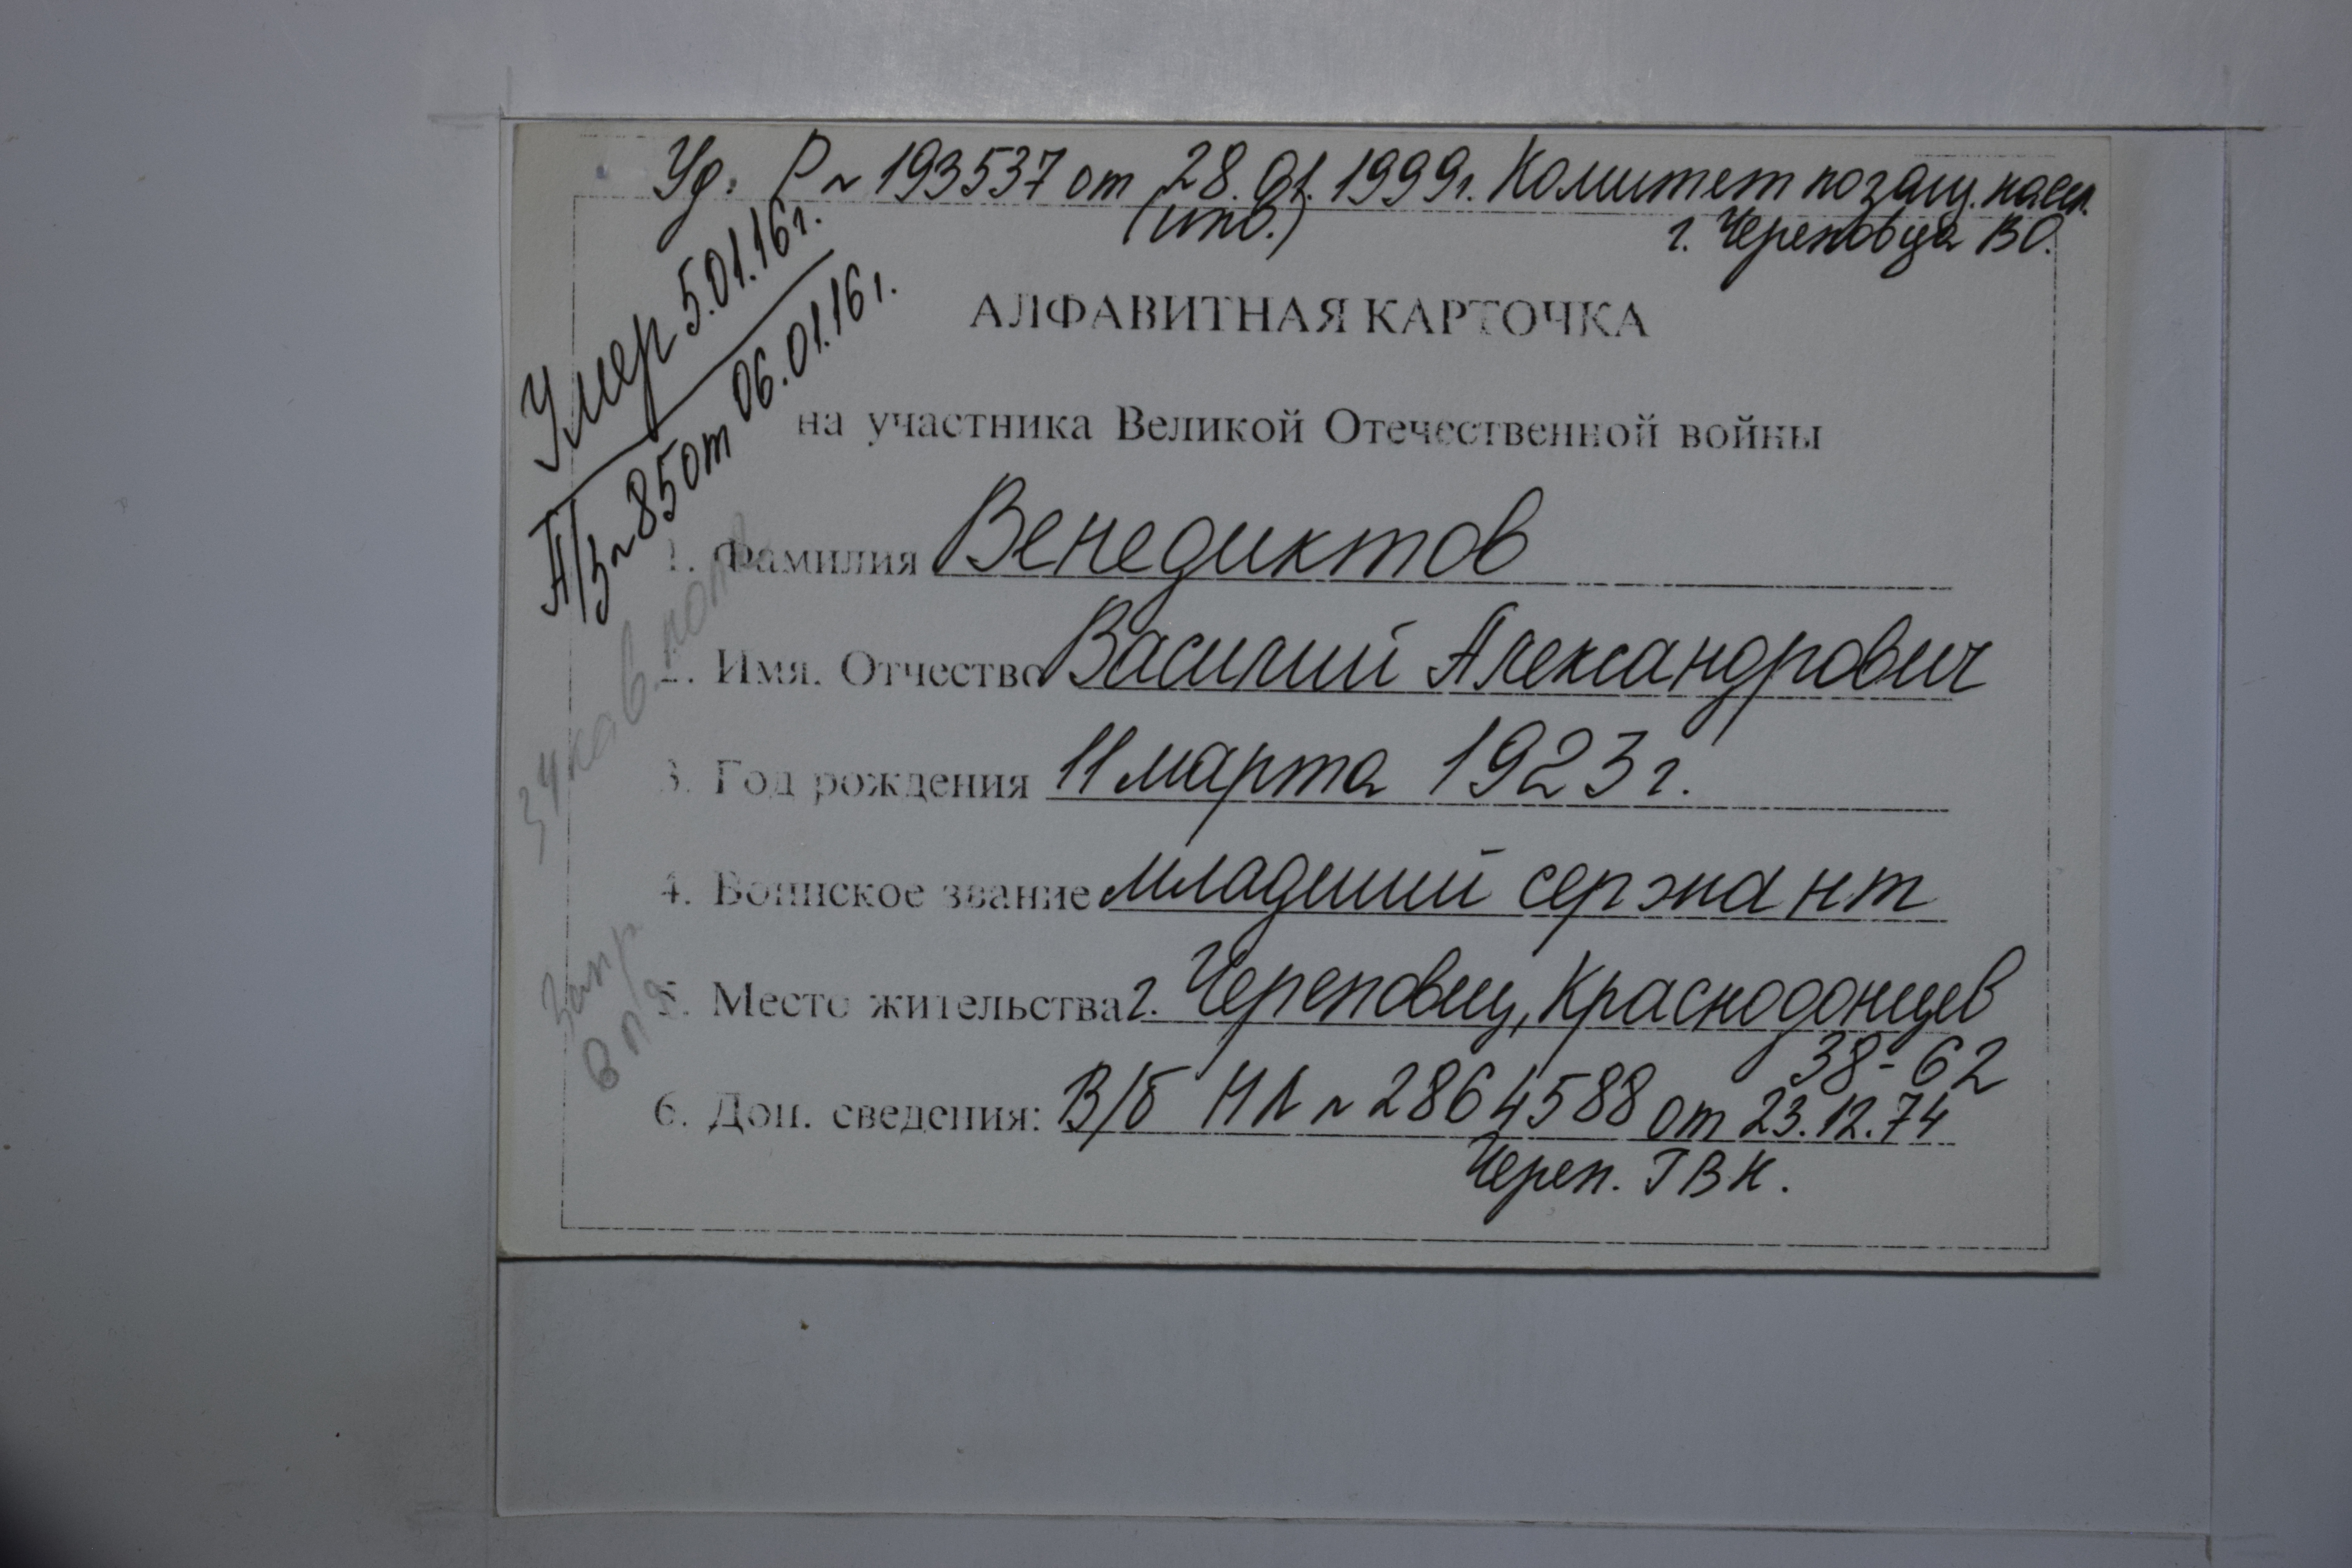 Уд. Р № 193537 от 28.01.1999г. Комитет по защ. насел.
(инв.) г. Череповца ВО.
Умер 5.01.16г.
А/з № 85 от 06.01.16г.
АЛФАВИТНАЯ КАРТОЧКА
на участника Великой Отечественной войны
1. Фамилия Венедиктов
2. Имя. Отчество Василий Александрович
3. Год рождения 11 марта 1923г.
4. Воинское звание младший сержант
5. Место жительства г. Череповец, Краснодонцев
38-62
6. Доп. сведения: В/б НЛ № 2864588 от 23.12.74
Череп. ГВК.